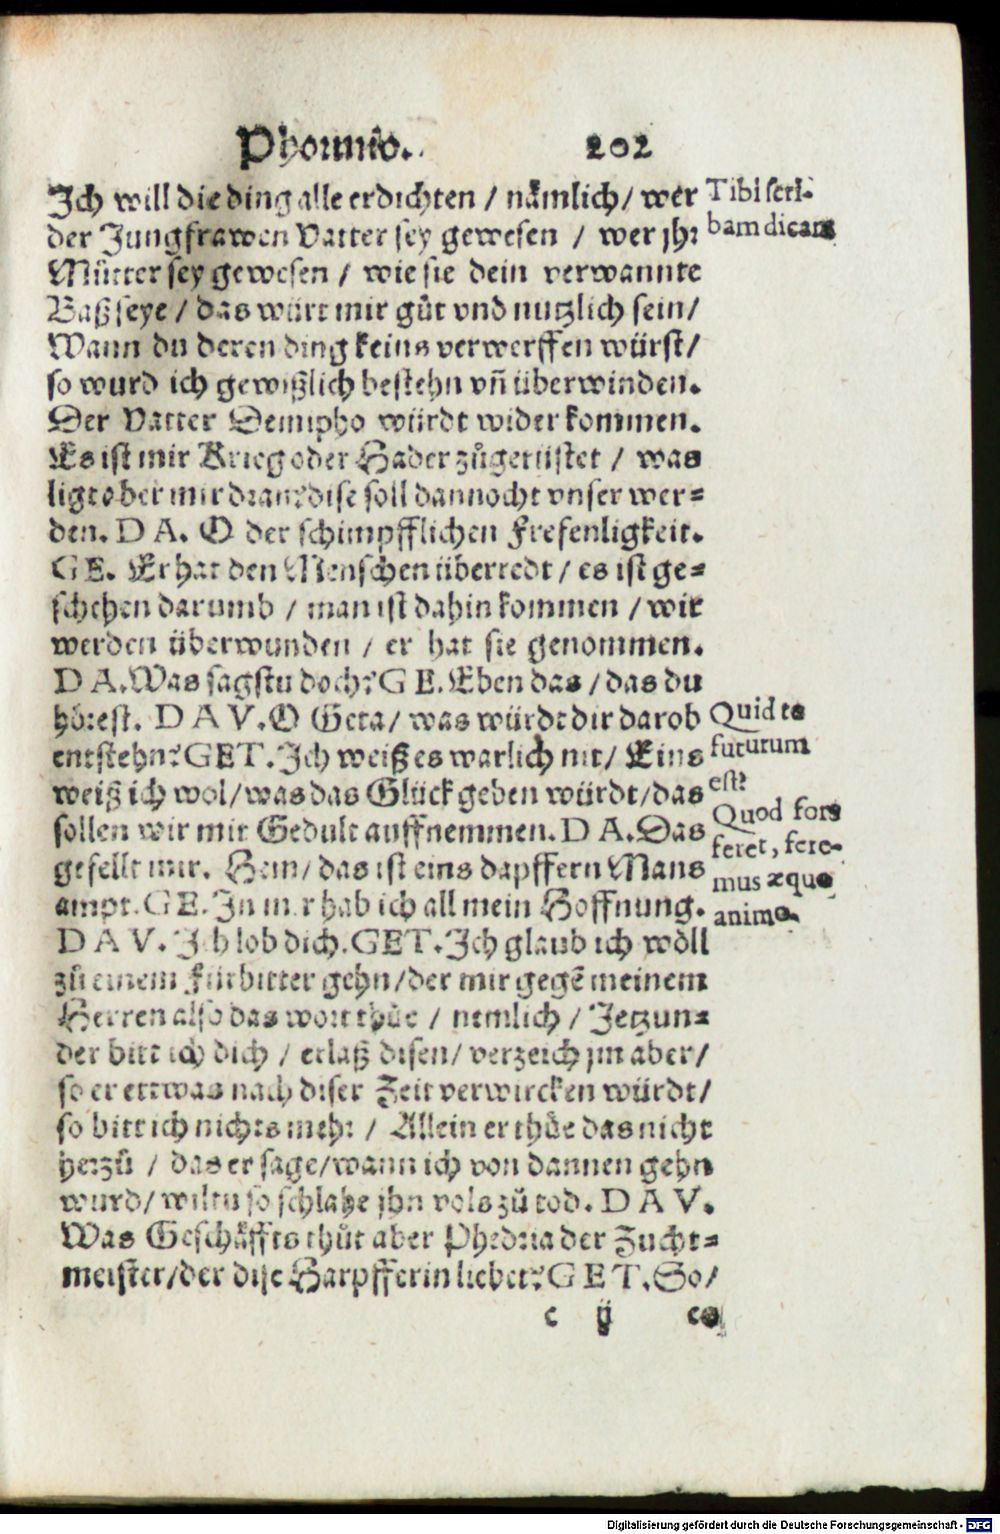 Phormio. 202
Ich will die ding alle erdichten / nämlich / wer
der Jungfrawen Vatter sey gewesen / wer jhr
Můtter sey gewesen / wie sie dein verwannte
Baß seye / das würt mir gůt vnd nutzlich sein /
Wann du deren ding keins verwerffen würst /
so wurd ich gewißlich bestehn vñ überwinden.
Der Vatter Demipho würdt wider kommen.
Es ist mir Krieg oder Hader zůgerüstet / was
ligt aber mir dran? dise soll dannocht vnser wer⸗
den. D A. O der schimpfflichen Frefenligkeit.
GE. Er hat den Menschen überredt / es ist ge⸗
schehen darumb / man ist dahin kommen / wir
werden überwunden / er hat sie genommen.
D A. Was sagstu doch? G E. Eben das / das du
hörest. D A V. O Geta / was würdt dir darob
entstehn? GET. Ich weiß es warlich nit / Eins
weiß ich wol / was das Glück geben würdt / das
sollen wir mit Gedult auffnemmen. D A. Das
gefellt mir. Hem / das ist eins dapffern Mans
ampt. GE. In mir hab ich all mein Hoffnung.
D A V. Ich lob dich. GET. Ich glaub ich wöll
zů einem Fürbitter gehn / der mir gegē meinem
Herren also das wort thůe / nemlich / Jetzun⸗
der bitt ich dich / erlaß disen / verzeich jm aber /
so er ettwas nach diser Zeit verwircken würdt /
so bitt ich nichts mehr / Allein er thůe das nicht
herzů / das er sage / wann ich von dannen gehn
wurd / wiltu so schlahe jhn vols zů tod. D A V.
Was Geschäffts thůt aber Phedria der Zucht⸗
meister / der dise Harpfferin liebet? G E T. So /
c ij co
Tibi scri⸗
bam dicam
Quid te
futurum
est?
Quod fors
feret, fere⸗
mus æquo
animo.
Digitalisierung gefördert durch die Deutsche Forschungsgemeinschaft - DFG